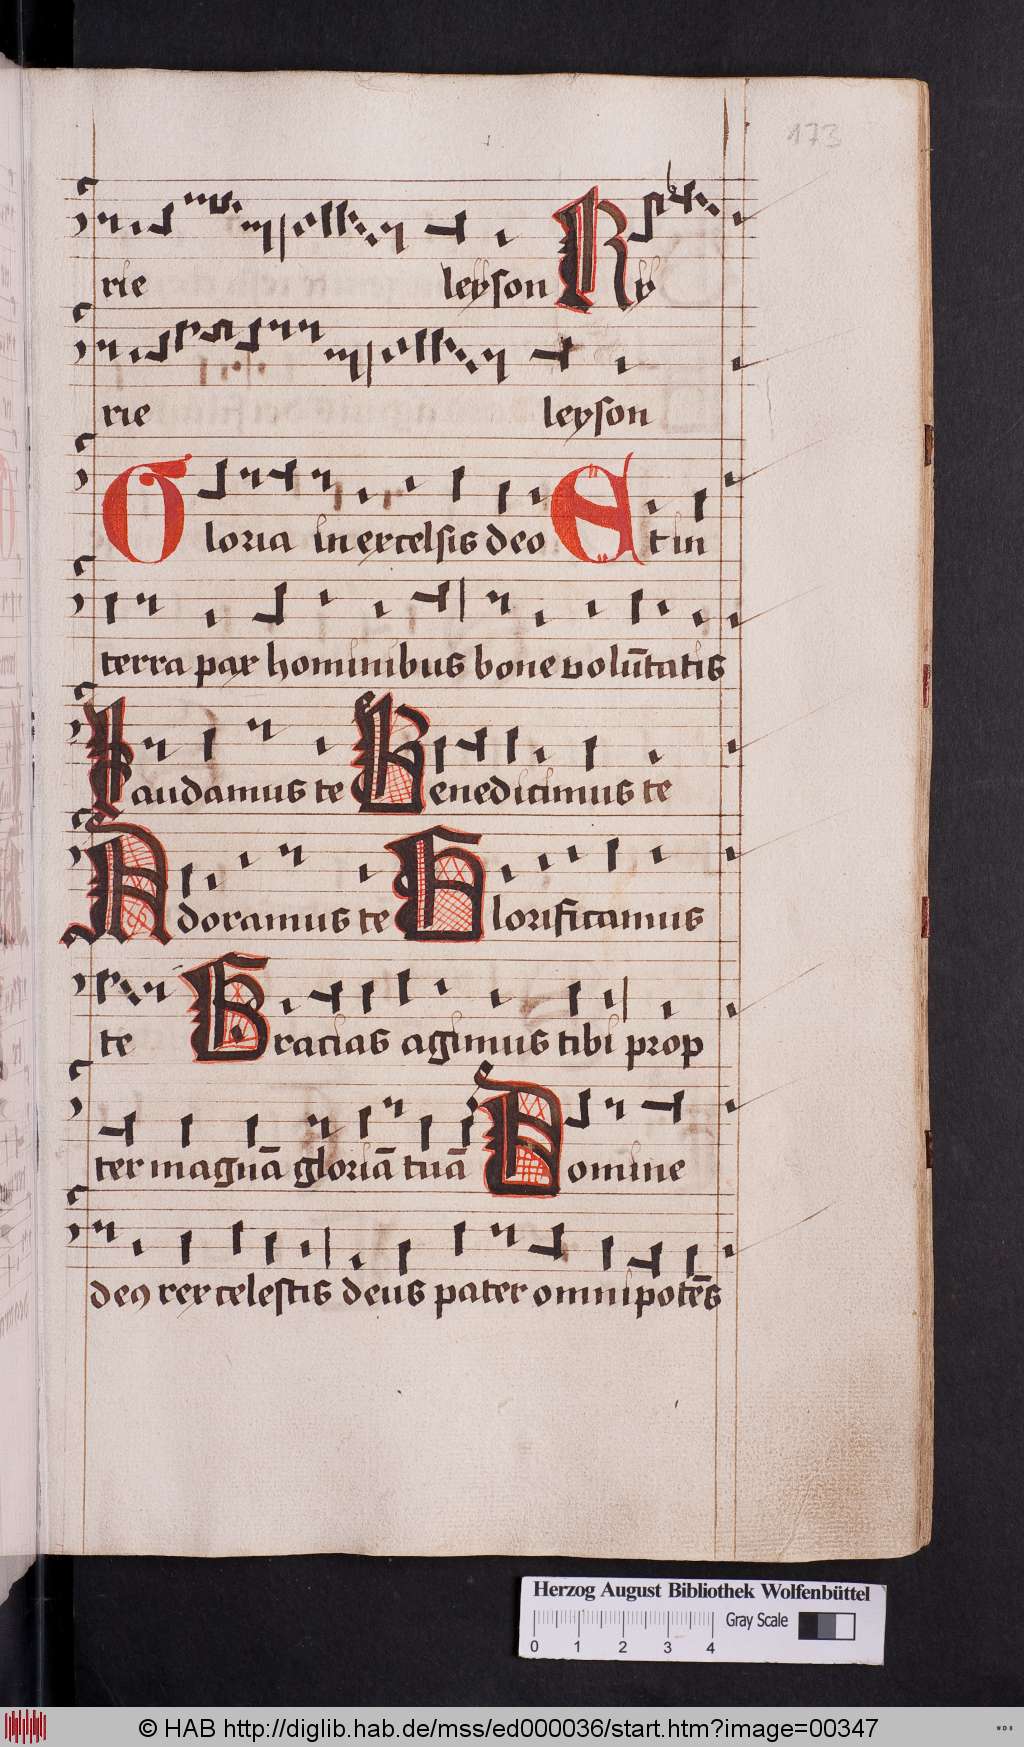 173
rie leyson Ky
rie leyson
Gloria in excelsis deo Et in
terra pax hominibus bone volūtatis
Laudamus te Benedicimus te
Adoramus te Glorificamus
te Gracias agimus tibi prop
ter magnā gloriā tuā Domine
deꝯ rex celestis deus pater omnipotēs
Herzog August Bibliothek Wolfenbüttel
Gray Scale
0 1 2 3 4
© HAB http://diglib.hab.de/mss/ed000036/start.htm?image=00347